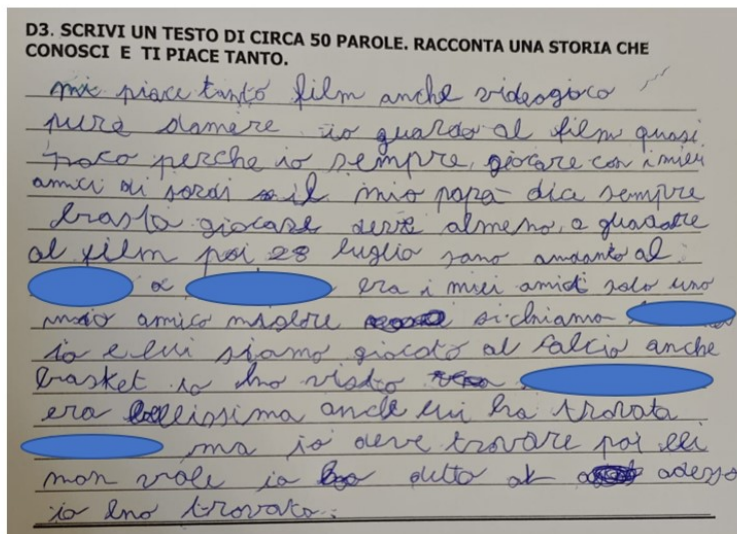 D3. SCRIVI UN TESTO DI CIRCA 50 PAROLE. RACCONTA UNA STORIA CHE
CONOSCI E TI PIACE TANTO.
mi piace tanto film anche videogioco
pure io guardo al film quasi
poco perche io sempre, giocare con i miei
amici di sordi il mio papà dice sempre
basta giocare deve almeno, a guardare
al film poi 28 luglio sono andanto al
a era i miei amici solo uno
mio amico migliore si chiamo
io e lui siamo giocato al calcio anche
basket io ho visto
era bellissima anche lui ha trovata
ma io deve trovare poi lui
non vale io detto adesso
io ho trovato.